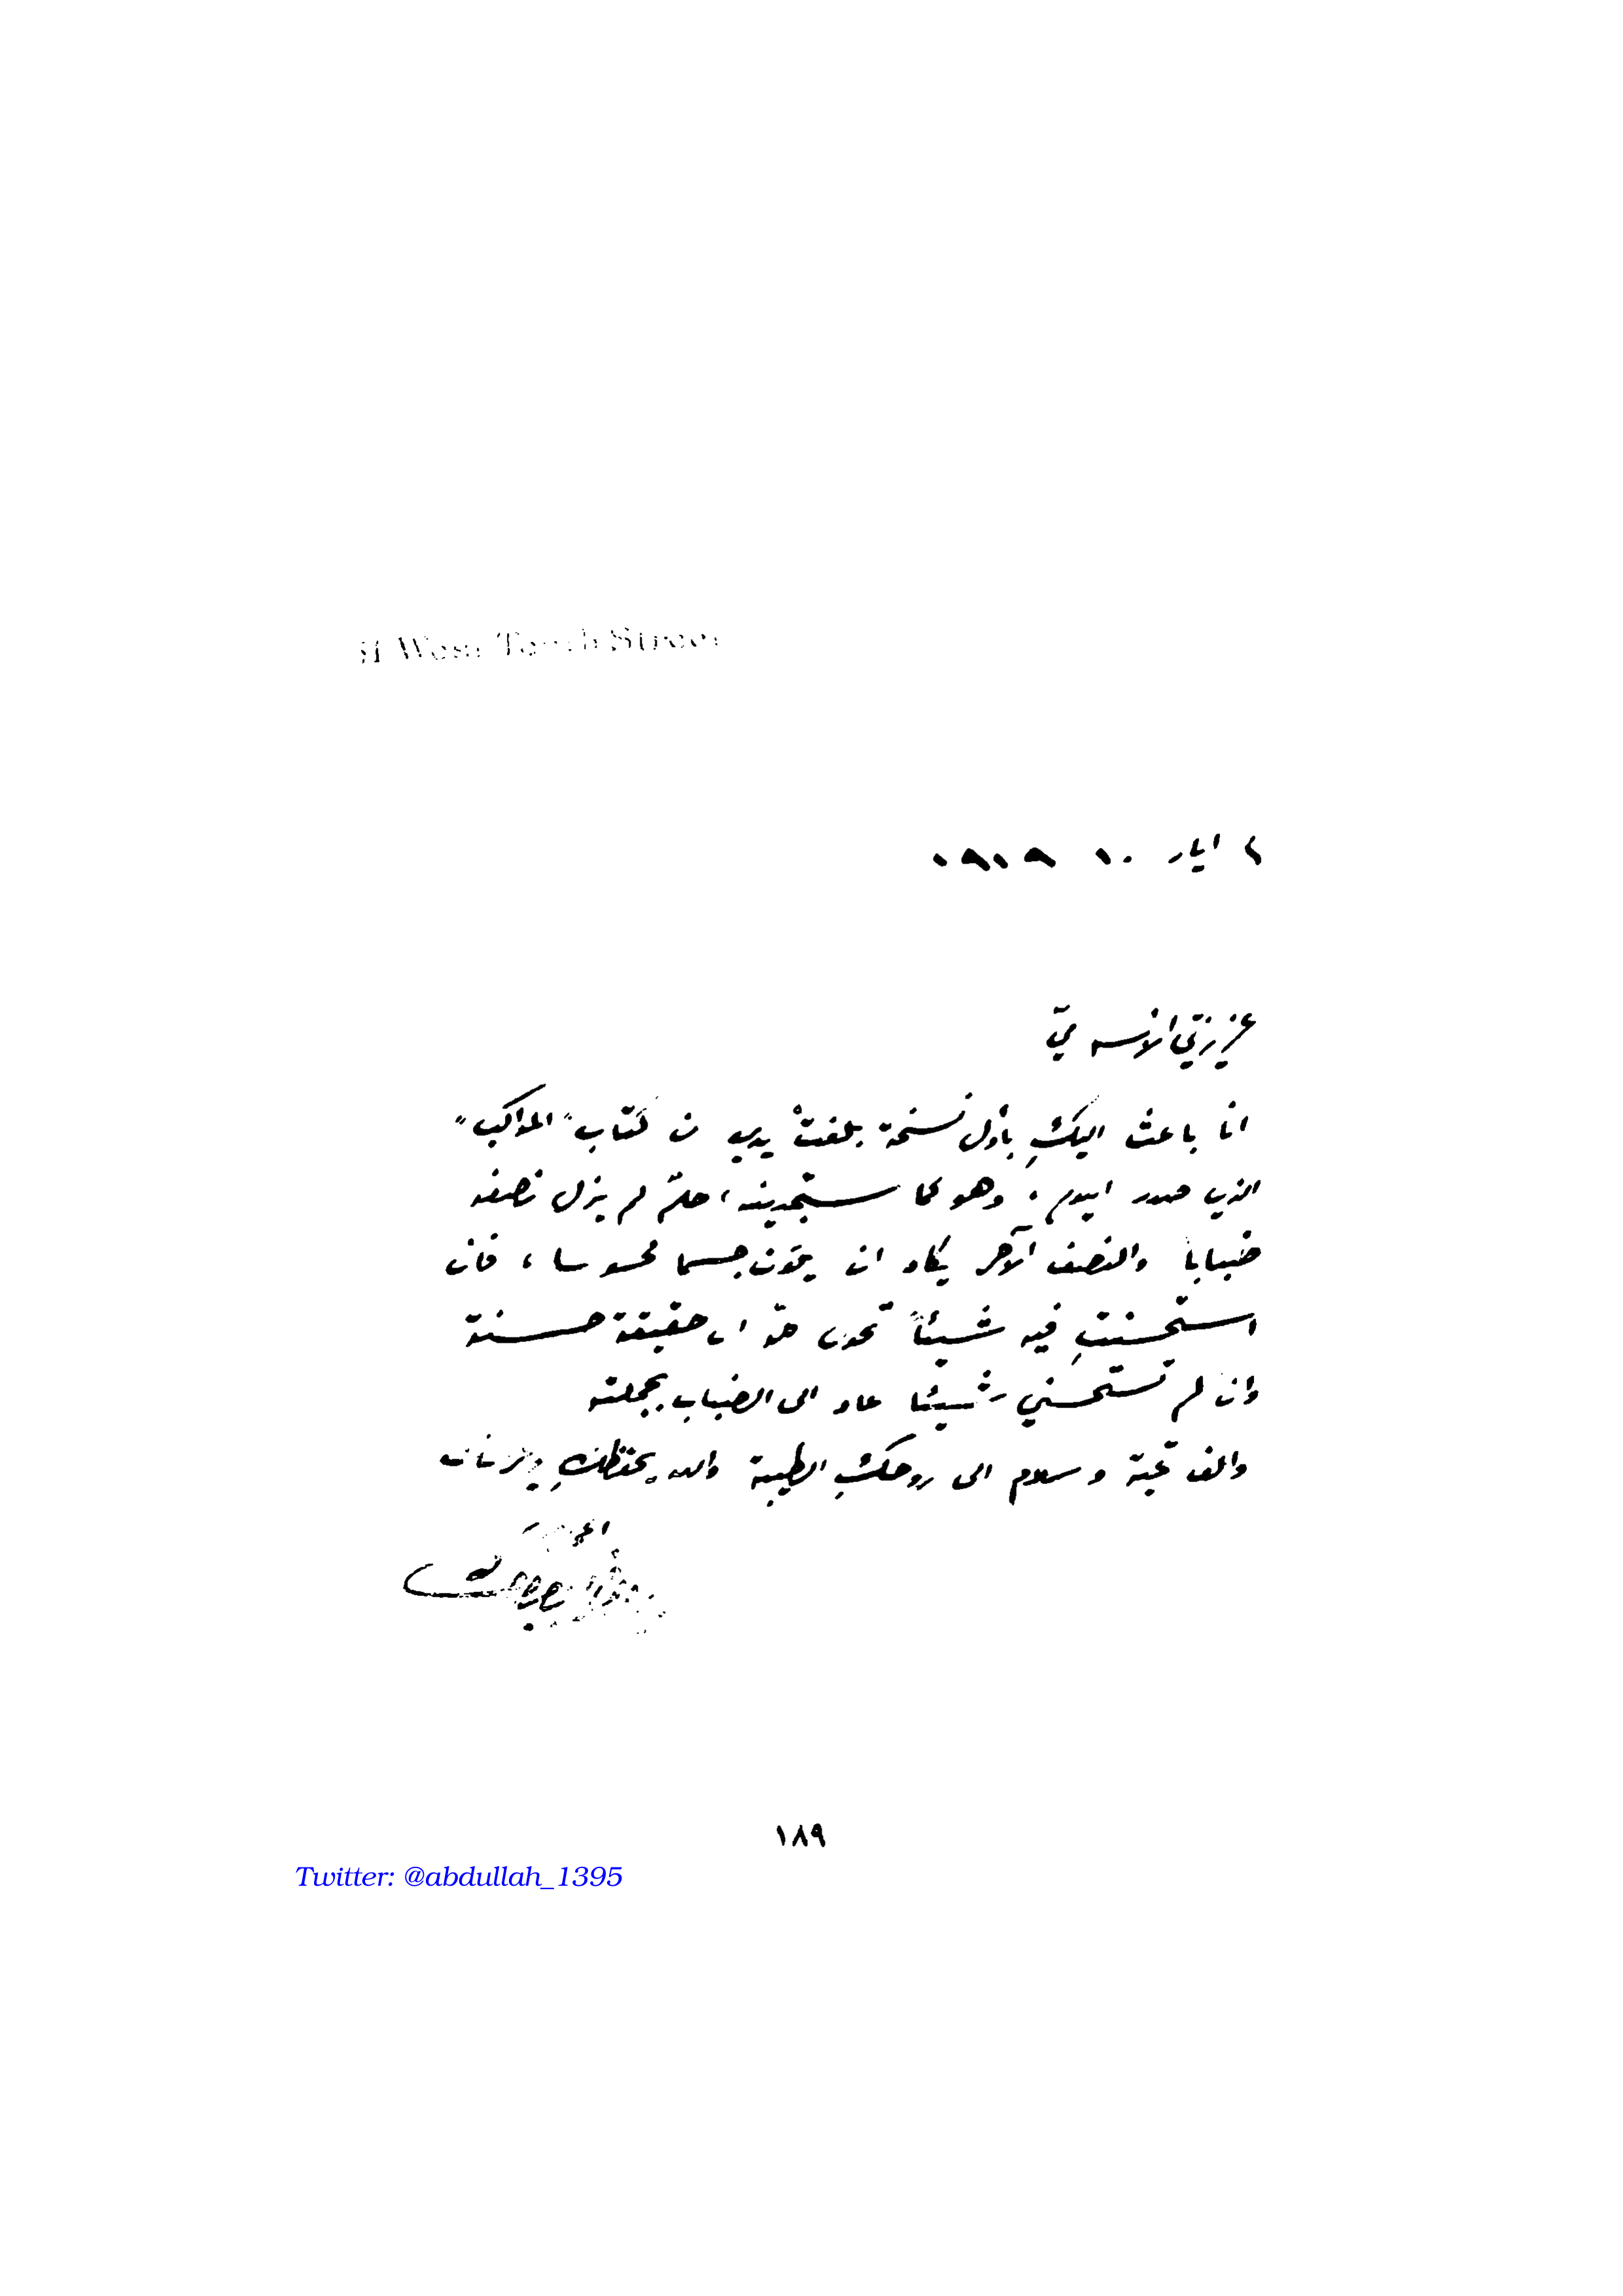 51 West Tenth Street
ايار ١٩١٩
عزيزتي الانسه ميّ
انا باعث اليكِ بأول نسخة بلغتْ يدي من كتاب "المواكب"
الذي صدر اليوم. وهو كما ستجدينه، حلمٌ لم يزل نصفه
ضباباً والنصف الآخر يكاد ان يكون جسما محسوسا، فان
استحسنتِ فيه شيئاً تحول الى حقيقة حسنة
وان لم تستحسني شيئا عاد الى الضباب بجملته
والف تحية وسلام الى روحكِ الطيبة والله يحفظكِ
جبران خليل جبران
١٨٩
Twitter: @abdullah_1395